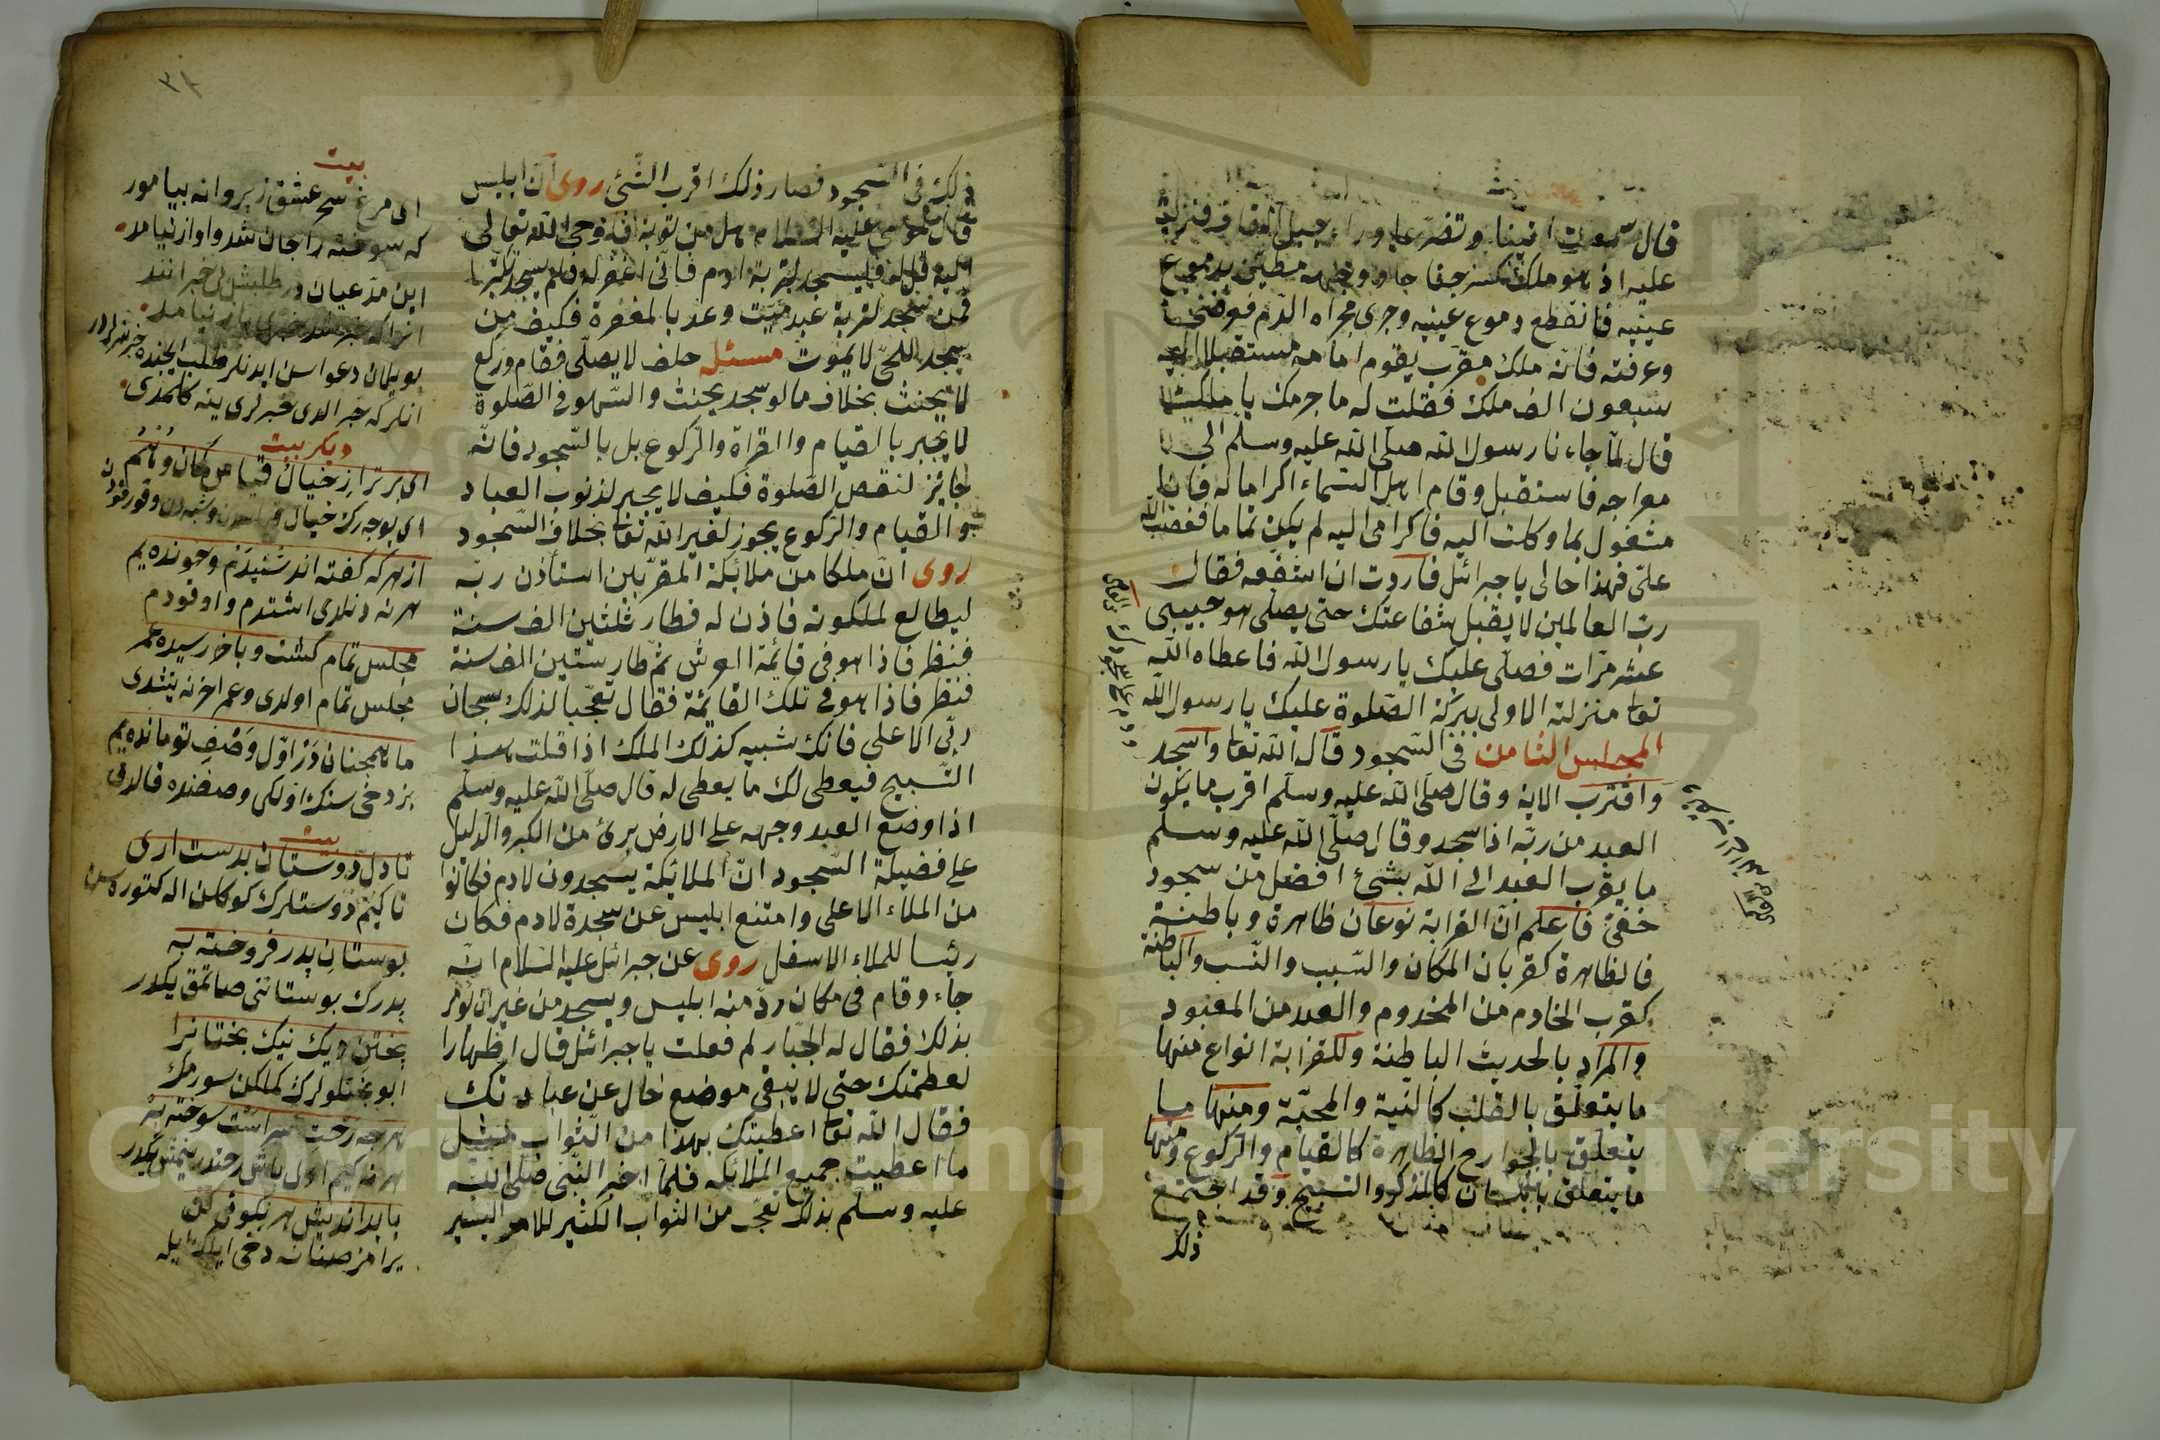 قال سمعت انينا وتضرعا وراء جبل القاف فنزلت
عليه اذ هو ملك كسر جناحاه ووجهه بدموع
عينيه فانقطع دموع عينيه وجرى مجراه الدم
وعرفته فانه ملك مقرب يقوم امامه مستقبلا اليه
سبعون الف ملك فقلت له ما جرمك يا ملك
قال لما جاءنا رسول الله صلى الله عليه وسلم الى
معراجه فاستقبل وقام اهل السماء اكراما له فانا
مشغول بما وكلت اليه فاكرامى اليه لم يكن تماما فغضب الله
على فهذا حالى يا جبرائل فاردت ان اشفعه فقال
رب العالمين لا يقبل شفاعتك حتى يصلى هو حبيبى
عشر مرات فصلى عليك يا رسول الله فاعطاه الله
تعا منزلته الاولى ببركة الصلوة عليك يا رسول الله
المجلس الثامن فى السجود قال الله تعا واسجد
واقترب الاية وقال صلى الله عليه وسلم اقرب ما يكون
العبد من ربه اذا سجد وقال صلى الله عليه وسلم
ما يقرب العبد الى الله بشئ افضل من سجود
خفى فاعلم ان القرابة نوعان ظاهرة وباطنة
فالظاهرة كقربان المكان والسبب والنسب والباطنة
كقرب الخادم من المخدوم والعبد من المعبود
والمراد بالحديث الباطنة وللقرابة انواع منها
ما يتعلق بالقلب كالنية والمحبة ومنها ما
يتعلق بالجوارح الظاهرة كالقيام والركوع ومنها
ما يتعلق باللسان كالذكر والتسبيح وقد اجتمع
ذلك
٣٨
ذلك فى السجود فصار ذلك اقرب الشئ روى ان ابليس
قال لموسى عليه السلام هل من توبة فاوحى الله تعالى
اليه قل له فليسجد لتربة ادم فانى اغفر له فلم يسجد تكبرا
فمن سجد لتربة عبد ميت وعد بالمغفرة فكيف من
يسجد للحى لا يموت مسئله حلف لا يصلى فقام وركع
لا يحنث بخلاف ما لو سجد يحنث والسهو فى الصلوة
لا يجبر بالقيام والقراة والركوع بل بالسجود فانه
جائز لنقص الصلوة فكيف لا يجبر لذنوب العباد
والقيام والركوع يجوز لغير الله تعا بخلاف السجود
روى ان ملكا من ملائكة المقربين استأذن ربه
ليطالع لملكوته فاذن له فطار ثلثين الف سنة
فنظر فاذا هو فى قائمة العرش ثم طار ستين الف سنة
فنظر فاذا هو فى تلك القائمة فقال تعجبا لذلك سبحان
ربى الاعلى فانك شبيه كذلك الملك اذا قلت هذا
التسبيح فيعطى لك ما يعطى له قال صلى الله عليه وسلم
اذا وضع العبد وجهه على الارض برئ من الكبر والدليل
على فضيلة السجود ان الملائكة يسجدون لادم فكانوا
من الملاء الاعلى وامتنع ابليس عن سجدة لادم فكان
رئيسا للملاء الاسفل روى عن جبرائل عليه السلام انه
جاء وقام فى مكان رد منه ابليس ويسجد من غير ان يؤمر
بذلك فقال له الجبار لم فعلت يا جبرائل قال اظهارا
لعظمتك حتى لا يبقى موضع خال عن عبادتك
فقال الله تعا اعطيتك بهذا من الثواب مثل
ما اعطيت جميع الملائكه فلما اخبر النبى صلى الله
عليه وسلم بذلك تعجب من الثواب الكثير للامر اليسير
بيت
اى مرغ سحر عشق ز پروانه بياموز
كه سوخته را جان شد و اواز نيامد
اين مدعيان در طلبش بى خبرانند
انرا كه خبر شد خبرى باز نيامد
بويلان دعواسن ايدنلر طلب ايچنده خبرسزلردر
انلر كه خبر الدى خبرلرى ينه كلمدى
ديكر بيت
اى برتر از خيال و قياس و كمان و وهم
اى يوجه رك خيال
از هر كه كفته اند شنيديم وخونده يم
هر نه ديديلر اشتدم و اوقودم
مجلس تمام كشت و باخر رسيده عمر
مجلس تمام اولدى وعمر اخرنه يتشدى
ما همچنان در اول وصف تو مانده يم
بز دخى سنك اولكى وصفنده قالدق
بيت
تا دل دوستان بدست ارى
تا كيم دوستلرك كوكلن اله كتوره سن
بوستان پدر فروخته به
پدرك بوستاننى صاتمق يكدر
پختن ديك نيك بختانرا
هر چه رخت سراست سوخته به
با بد انديش هم نكوئى كن
يرامز صنانه دخى ايلك ايله
Copyright © King University